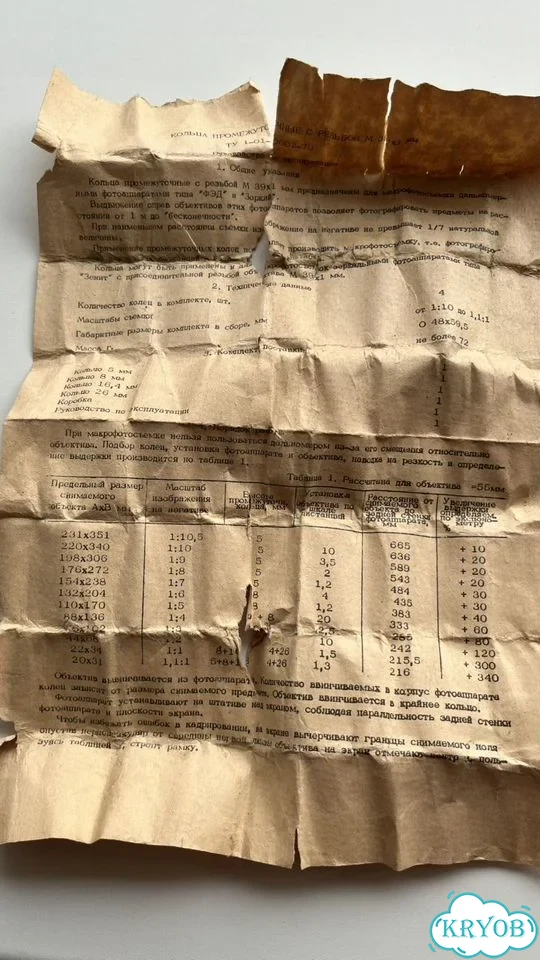 КОЛЬЦА ПРОМЕЖУТОЧНЫЕ С РЕЗЬБОЙ М 39х1 мм
ТУ
1. Общие указания
Кольца промежуточные с резьбой М 39х1 мм предназначены для макрофотосъемки дальномер-
ными фотоаппаратами типа "ФЭД" и "Зоркий".
Выдвижение оправ объективов этих фотоаппаратов позволяет фотографировать предметы на рас-
стоянии от 1 м до "бесконечности".
При наименьшем расстоянии съемки изображение на негативе не превышает 1/7 натуральной
величины.
Применение промежуточных колец производить макрофотосъемку, т.е. фотографиро-
Кольца могут быть применены и зеркальными фотоаппаратами типа
"Зенит" с присоединительной резьбой объектива М 39х1 мм.
2. Технические данные
Количество колец в комплекте, шт. 4
Масштабы съемки от 1:10 до 1,1:1
Габаритные размеры комплекта в сборе, мм 48х59,5
Масса, не более 72
3. Комплект поставки
Кольцо 5 мм 1
Кольцо 8 мм 1
Кольцо 16,4 мм 1
Кольцо 26 мм 1
Коробка 1
Руководство по эксплуатации 1
При макрофотосъемке нельзя пользоваться дальномером из-за его смещения относительно
объектива. Подбор колец, установка фотоаппарата и объектива, наводка на резкость и определе-
ние выдержки производится по таблице 1.
Таблица 1. Рассчитана для объектива =55мм
Предельный размер снимаемого объекта АхВ мм Масштаб изображения на негативе Высота промежуточн. кольца, мм Установка объектива по шкале дистанций Расстояние от снимаемого объекта до задней стенки фотоаппарата, мм Увеличение выдержки определяем. по экспоно- метру
231х351 1:10,5 5 665 + 10
220х340 1:10 5 10 636 + 20
198х306 1:9 5 3,5 589 + 20
176х272 1:8 5 2 543 + 20
154х238 1:7 5 1,2 484 + 30
132х204 1:6 8 4 435 + 30
110х170 1:5 8 1,2 383 + 40
88х136 1:4 + 8 20 333 + 60
2,5 + 80
22х34 1:1 4+26 1,5 242 + 120
20х31 1,1:1 4+26 1,3 215,5 + 300
216 + 340
Объектив вывинчивается из фотоаппарата. Количество ввинчиваемых в корпус фотоаппарата
колец зависит от размера снимаемого предмета. Объектив ввинчивается в крайнее кольцо.
Фотоаппарат устанавливают на штативе над экраном, соблюдая параллельность задней стенки
фотоаппарата и плоскости экрана.
Чтобы избежать ошибок в кадрировании, на экране вычерчивают границы снимаемого поля
опустив перпендикуляр от объектива на экран отмечают центр и, поль-
зуясь таблицей строят рамку.
KRYOB